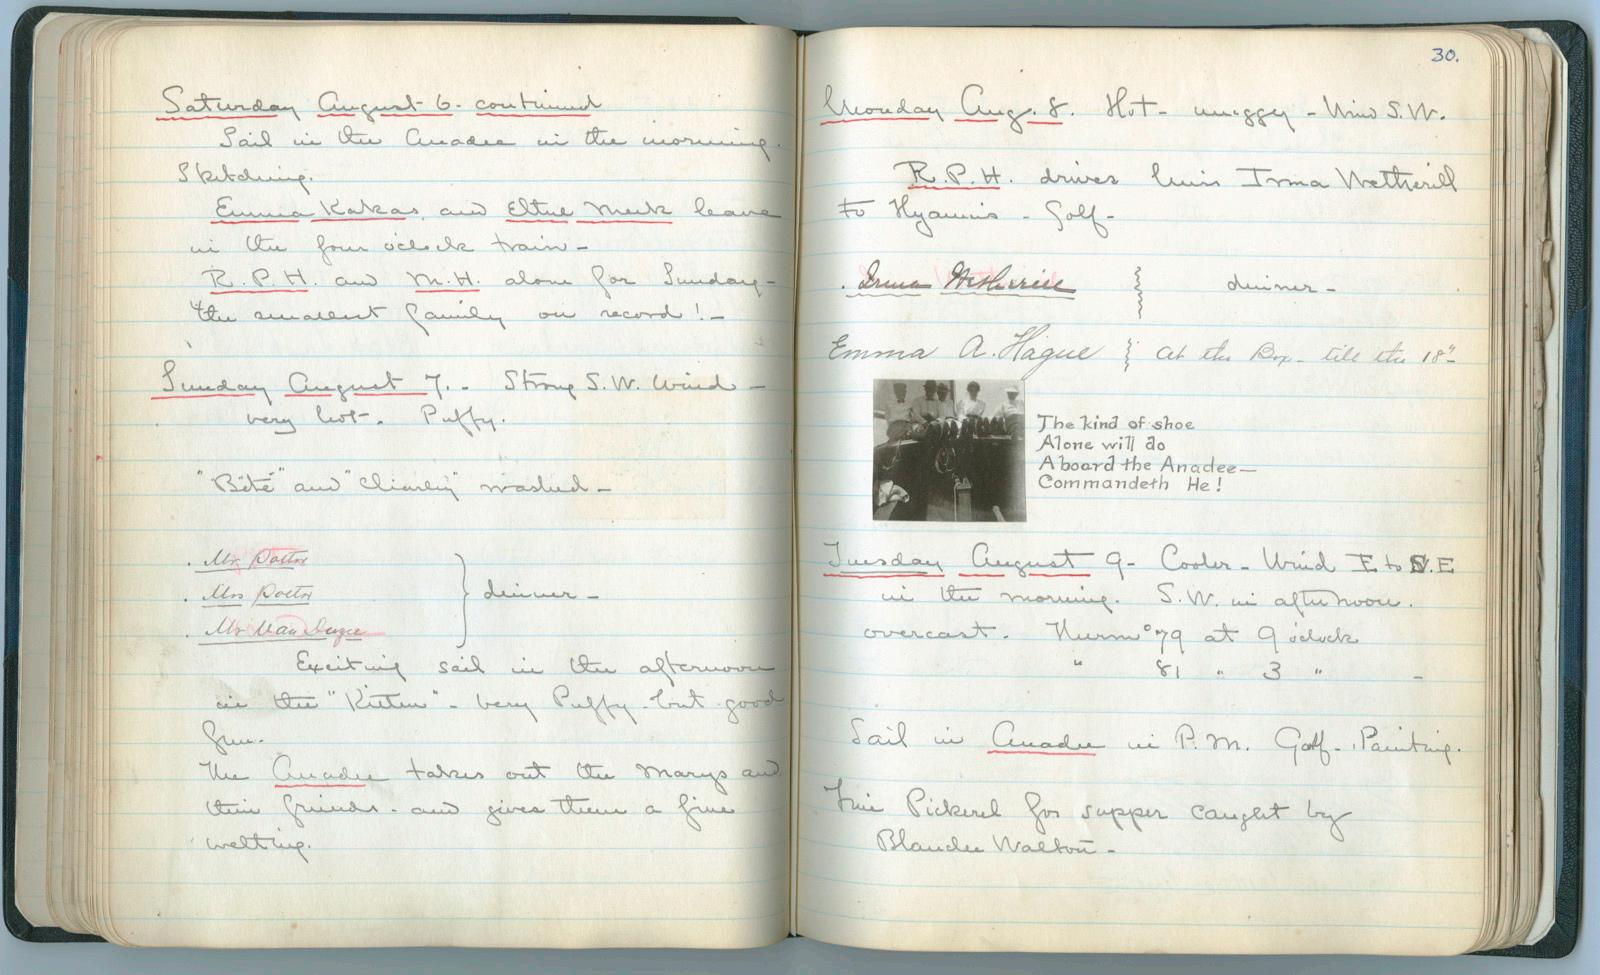 Saturday August 6. continued
Sail in the Anadee in the morning.
Sketching.
Emma Kakas and leave
in the four o'clock train -
R.P.H. and M.H. alone for Sunday -
the smallest family on record! -
Sunday August 7. - Strong S.W. Wind -
very hot. Puffy.
"Bêté" and "Charley" washed -
Mr.
Mrs
dinner -
Mr Van
Exciting sail in the afternoon
in the "Kitten" - very Puffy - but good
fun.
The Anadee takes out the Marys and
their friends - and gives them a fine
wetting.
30.
Monday Aug. 8. Hot - muggy - Wind S.W.
R.P.H. drives Miss Irma Wetherill
to Hyannis - Golf -
Irma Wetherill dinner -
Emma A. Hague at the Box - till the 18"
The kind of shoe
Alone will do
Aboard the Anadee—
Commandeth He!
Tuesday August 9 - Cooler - Wind E to S.E
in the morning. S.W. in afternoon.
overcast. Therm° 79 at 9 o'clock
" 81 " 3 " -
Sail in Anadee in P.M. Golf - Painting.
Fine Pickerel for supper caught by
Walton -